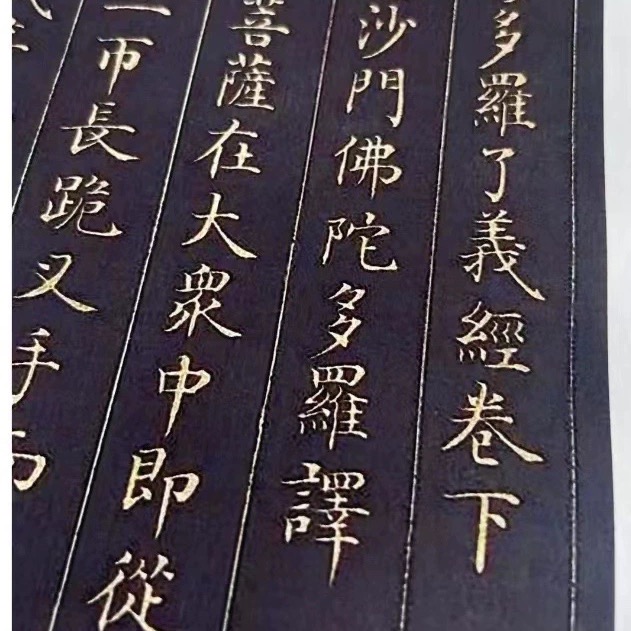 多羅了義經卷下
沙門佛陀多羅譯
菩薩在大衆中即從
一帀長跪叉手而